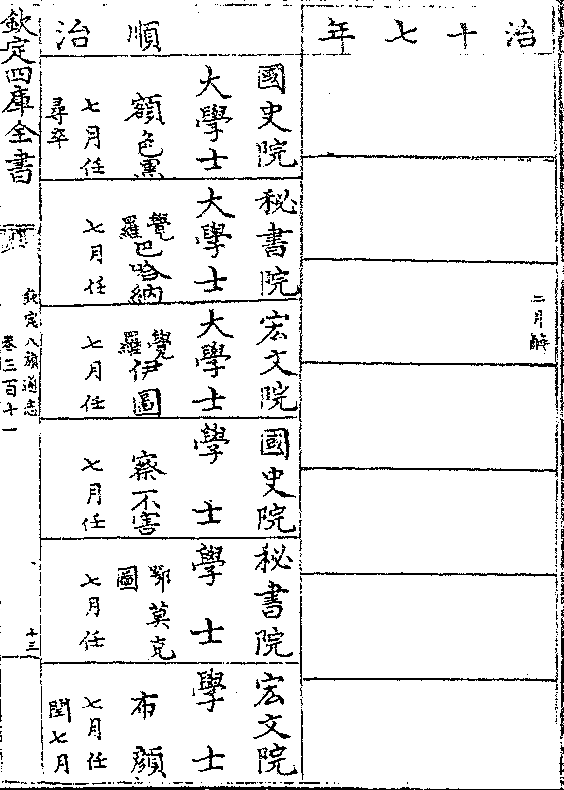 治十七年
二月解
順治
國史院
大學士
額色黑
七月任
尋卒
秘書院
大學士
覺羅巴哈納
七月任
宏文院
大學士
覺羅伊圖
七月任
國史院
學士
察不害
七月任
秘書院
學士
鄂莫克圖
七月任
宏文院
學士
布顏
七月任
閏七月
欽定四庫全書
欽定八旗通志
卷三百十一
十三